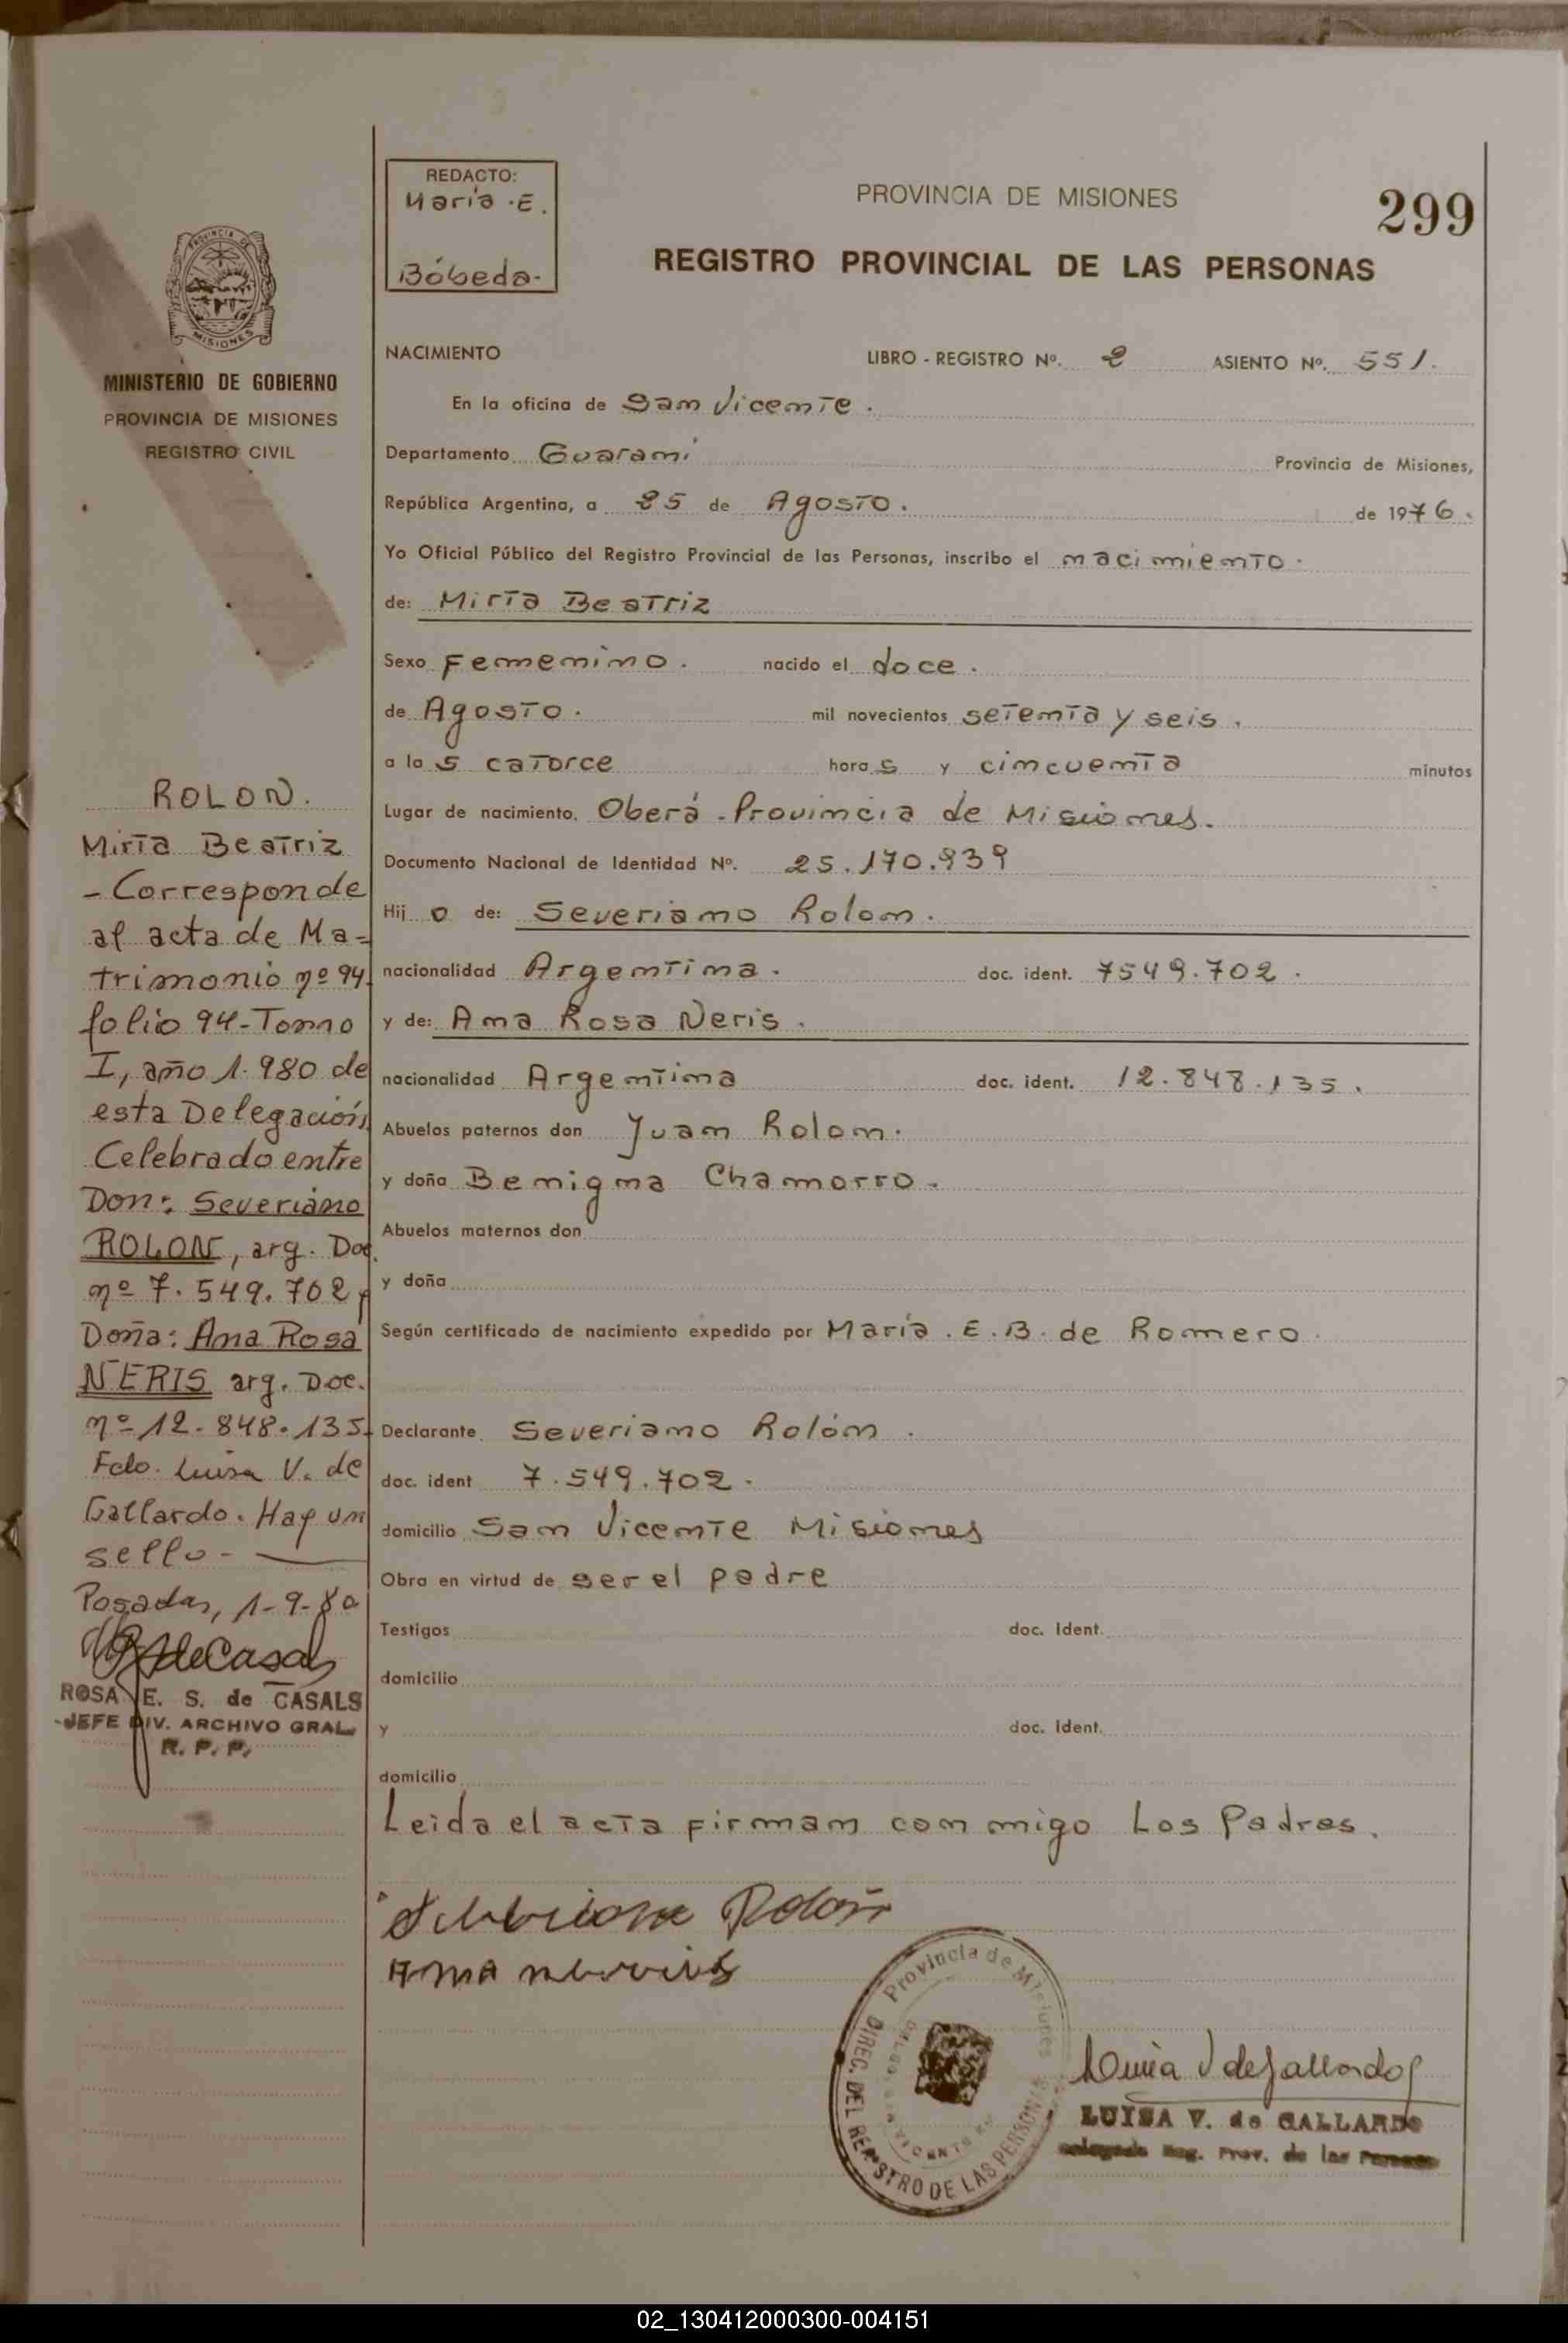 REDACTO:
María .E.
Bóbeda-
PROVINCIA DE MISIONES
299
REGISTRO PROVINCIAL DE LAS PERSONAS
PROVINCIA DE
MISIONES
MINISTERIO DE GOBIERNO
PROVINCIA DE MISIONES
REGISTRO CIVIL
NACIMIENTO LIBRO - REGISTRO Nº. 2 ASIENTO Nº. 551.
En la oficina de San Vicente.
Departamento Guaraní Provincia de Misiones,
República Argentina, a 25 de Agosto. de 1976.
Yo Oficial Público del Registro Provincial de las Personas, inscribo el nacimiento.
de: Mirta Beatriz
Sexo Femenino. nacido el doce.
de Agosto. mil novecientos setenta y seis.
a las catorce horas y cincuenta minutos
Lugar de nacimiento. Oberá - Provincia de Misiones.
Documento Nacional de Identidad Nº. 25.170.939
Hijo de: Severiano Rolon.
nacionalidad Argentina. doc. ident. 7549.702.
y de: Ana Rosa Neris.
nacionalidad Argentina doc. ident. 12.848.135.
Abuelos paternos don Juan Rolon.
y doña Benigna Chamorro.
Abuelos maternos don
y doña
Según certificado de nacimiento expedido por María. E.B. de Romero.
Declarante Severiano Rolón.
doc. ident 7.549.702.
domicilio San Vicente Misiones
Obra en virtud de ser el padre
Testigos doc. Ident.
domicilio
y doc. Ident.
domicilio
Leida el acta firman conmigo Los Padres.
ROLON.
Mirta Beatriz
- Corresponde
al acta de Ma-
trimonio nº 94
folio 94-Tomo
I, año 1.980 de
esta Delegación
Celebrado entre
Don: Severiano
ROLON, arg. Doc.
nº 7.549.702 y
Doña: Ana Rosa
NERIS arg. Doc.
nº 12.848.135
Fdo. Luisa V. de
Gallardo. Hay un
sello -
Posadas, 1-9-80
ROSA E. S. de CASALS
JEFE DIV. ARCHIVO GRAL.
R. P. P.
Severiano Rolon
Ana neris
Provincia de Misiones
DIREC. DEL REGISTRO DE LAS PERSONAS
Luisa V de Gallardo
LUISA V. de GALLARDO
Delegada Reg. Prov. de las Personas
02_130412000300-004151